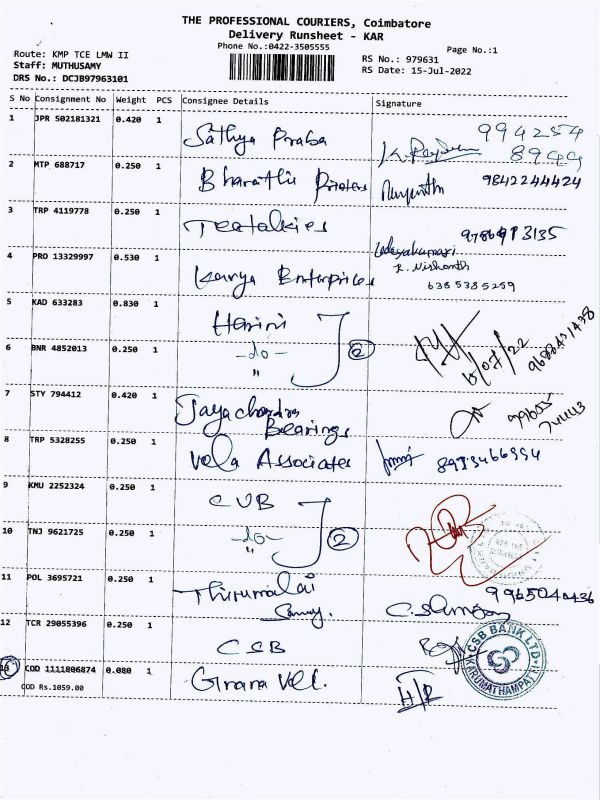 THE PROFESSIONAL COURIERS, Coimbatore
Delivery Runsheet - KAR
Phone No.:0422-3505555
Page No.:1
Route: KMP TCE LMW II
Staff: MUTHUSAMY
DRS No.: DCJB97963101
RS No.: 979631
RS Date: 15-Jul-2022
S No Consignment No Weight PCS Consignee Details Signature
1 JPR 502181321 0.420 1 Sathya Praba 994254
8944
2 MTP 688717 0.250 1 Bharathi Printers 9842244424
3 TRP 4119778 0.250 1 Teatalkies
Udayakumari
4 PRO 13329997 0.530 1 Kavya Enterprices K. Nishanth
6385385259
5 KAD 633283 0.830 1 Harini
15/07/22 9688431438
6 BNR 4852013 0.250 1 -do- 2
"
7 STY 794412 0.420 1 Jayachandra
Bearings
8 TRP 5328255 0.250 1 Vela Associates
9 KMU 2252324 0.250 1 CUB
10 TNJ 9621725 0.250 1 -do- 2
"
11 POL 3695721 0.250 1 Thirumalai
Samy. 9965040436
12 TCR 29055396 0.250 1 CSB
CSB BANK LTD
KARUMATHAMPATTI
13 COD 1111806874 0.080 1 Gnana Vel.
COD Rs.1059.00